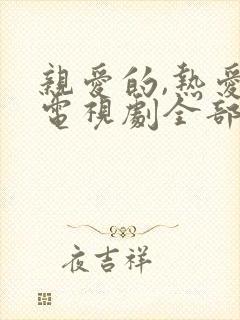 親愛的,熱愛
電視劇全部
夜吉祥